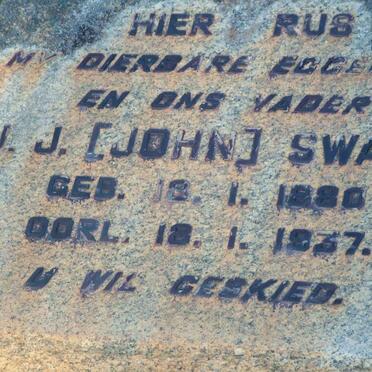 HIER RUS
MY DIERBARE EGGE
EN ONS VADER
J. J. [JOHN] SWA
GEB. 18. 1. 1880
OORL. 18. 1. 1937.
U WIL GESKIED.